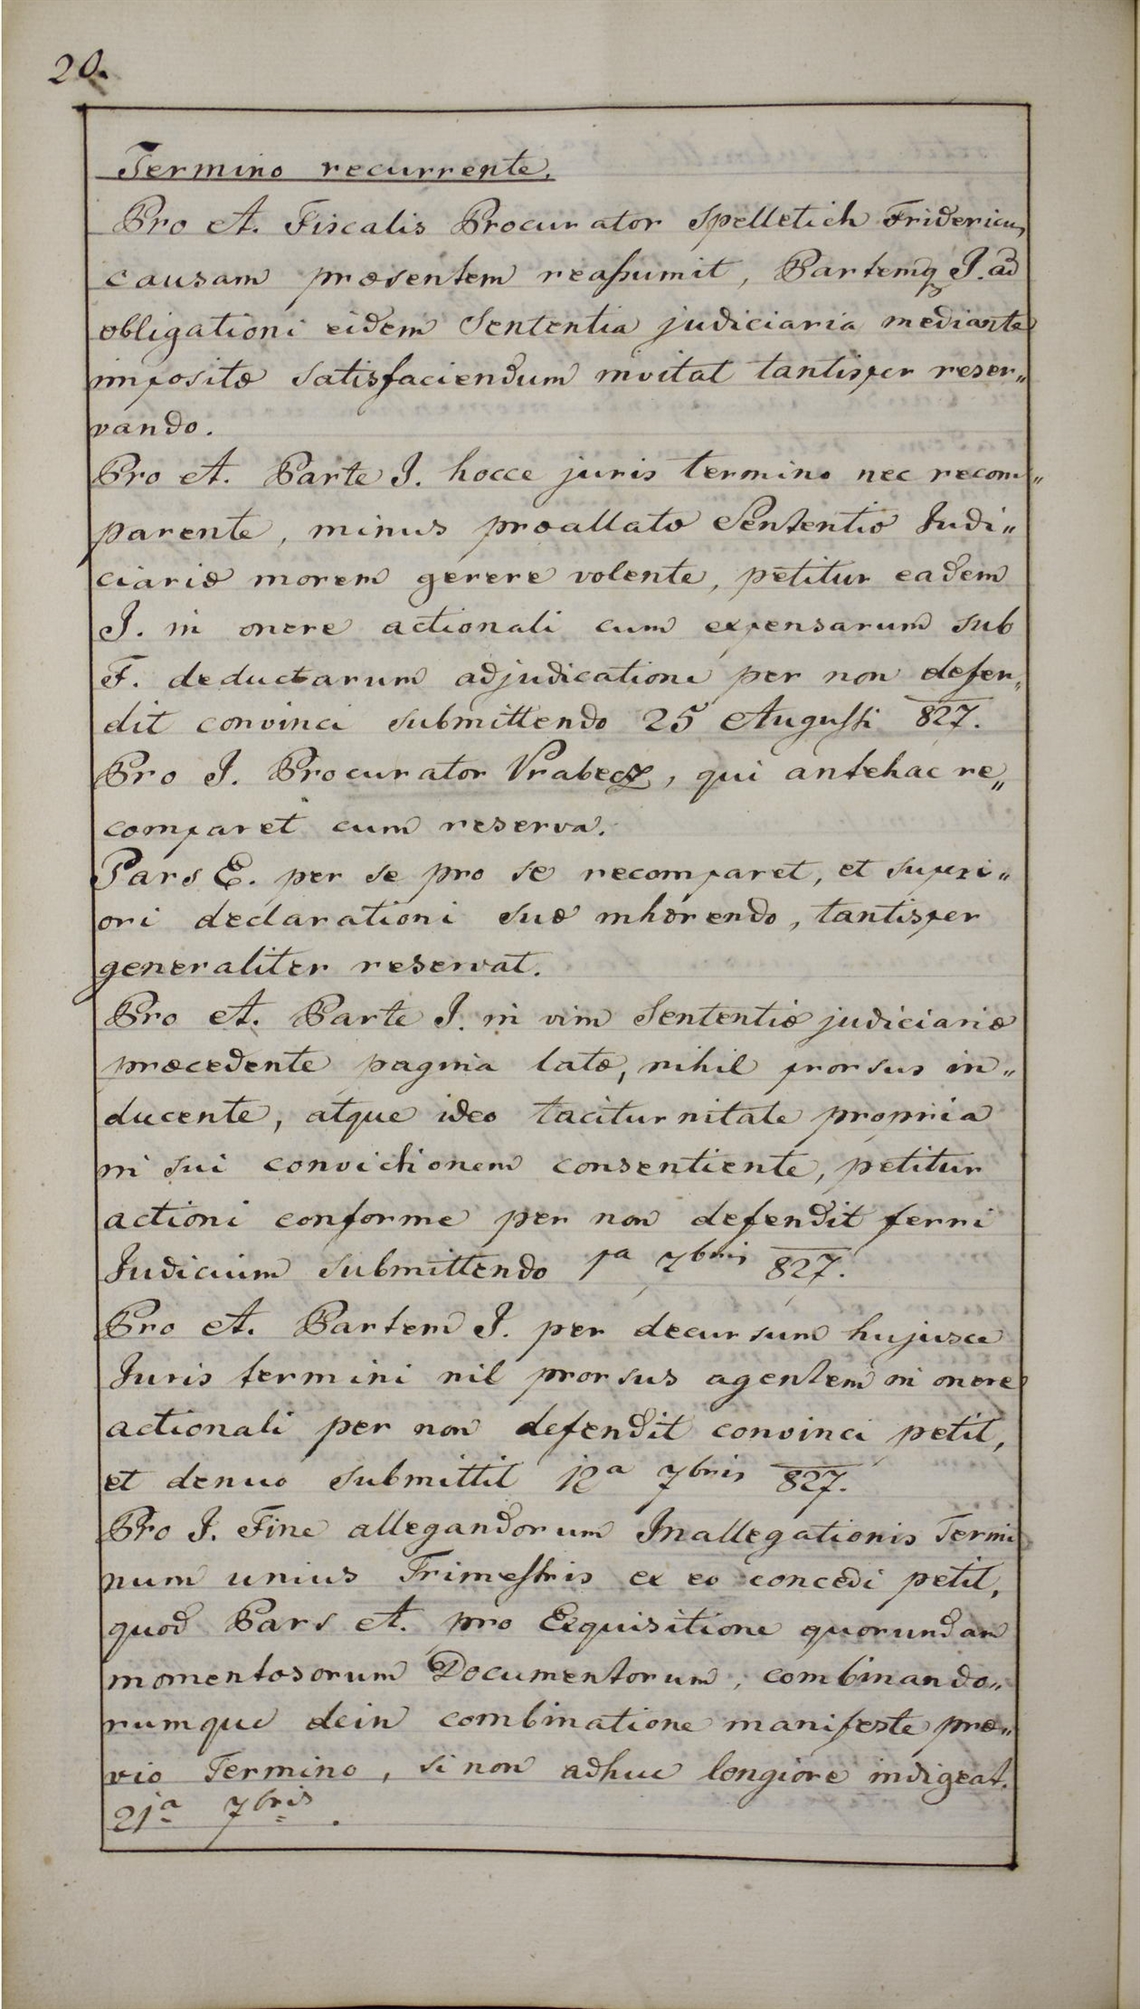 20.
Termino recurrente.
Pro A. Fiscalis Procurator Spelletich Fridericus
causam præsentem reassumit, Partemq J. ad
obligationi eidem Sententia judiciaria mediante
impositæ satisfaciendum invitat tantisper reser„
vando.
Pro A. Parte J. hocce juris termino nec recom„
parente, minus præallatæ Sententiæ Judi„
ciariæ morem gerere volente, petitur eadem
J. in onere actionali cum expensarum sub
F. deductarum adjudicatione per non defen„
dit convinci submittendo 25 Augusti 827.
Pro J. Procurator Vrabecz, qui antehac re„
comparet cum reserva.
Pars E. per se pro se recomparet, et superi„
ori declarationi suæ inhærendo, tantisper
generaliter reservat.
Pro A. Parte J. in vim Sententiæ judiciariæ
præcedente pagina latæ, nihil prorsus in„
ducente, atque ideo taciturnitate propria
in sui convictionem consentiente, petitur
actioni conforme per non defendit ferri
Judicium submittendo 1a 7bris 827.
Pro A. Partem J. per decursum hujusce
Juris termini nil prorsus agentem in onere
actionali per non defendit convinci petit,
et denuo submittit 12a 7bris 827.
Pro J. Fine allegandorum Inallegationis Termi
num unius Trimestris ex eo concedi petit,
quod Pars A. pro Exquisitione quorundam
momentosorum Documentorum, combinando„
rumque dein combinatione manifeste præ„
vio Termino, si non adhuc longiore indigeat.
21a 7bris.